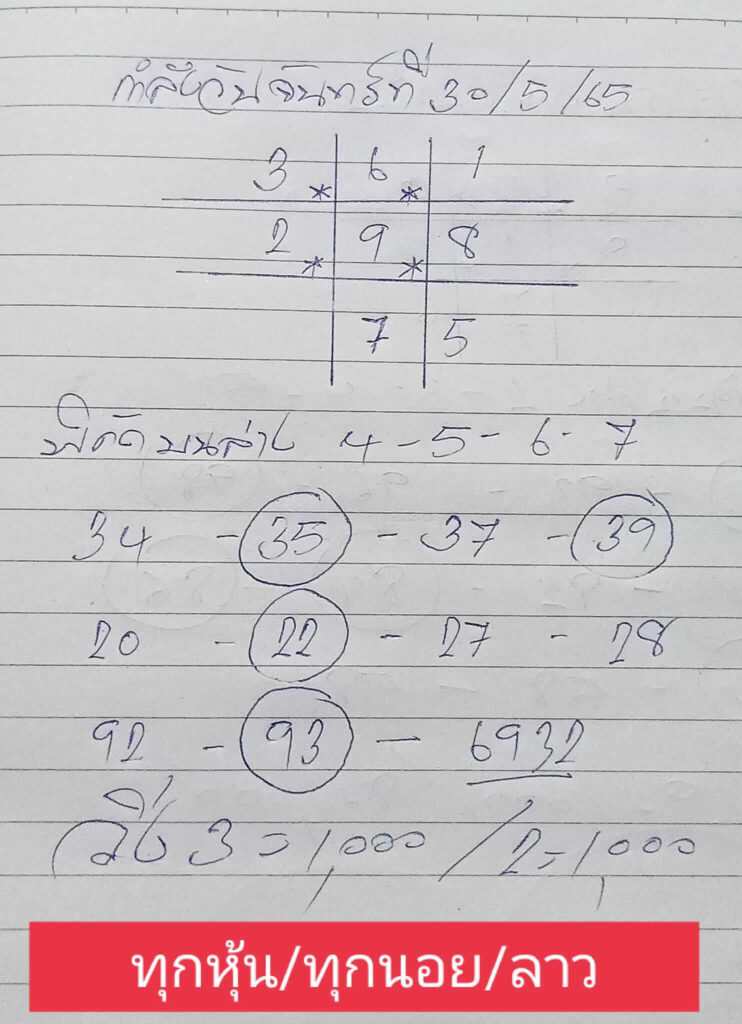 กำลังวันจันทร์ที่ 30/5/65
3 * 6 * 1
2 * 9 * 8
7 5
พิกัด บนล่าง 4 - 5 - 6 - 7
34 - 35 - 37 - 39
20 - 22 - 27 - 28
92 - 93 - 6932
วิ่ง 3 = 1,000 / 2 = 1,000
ทุกหุ้น/ทุกนอย/ลาว